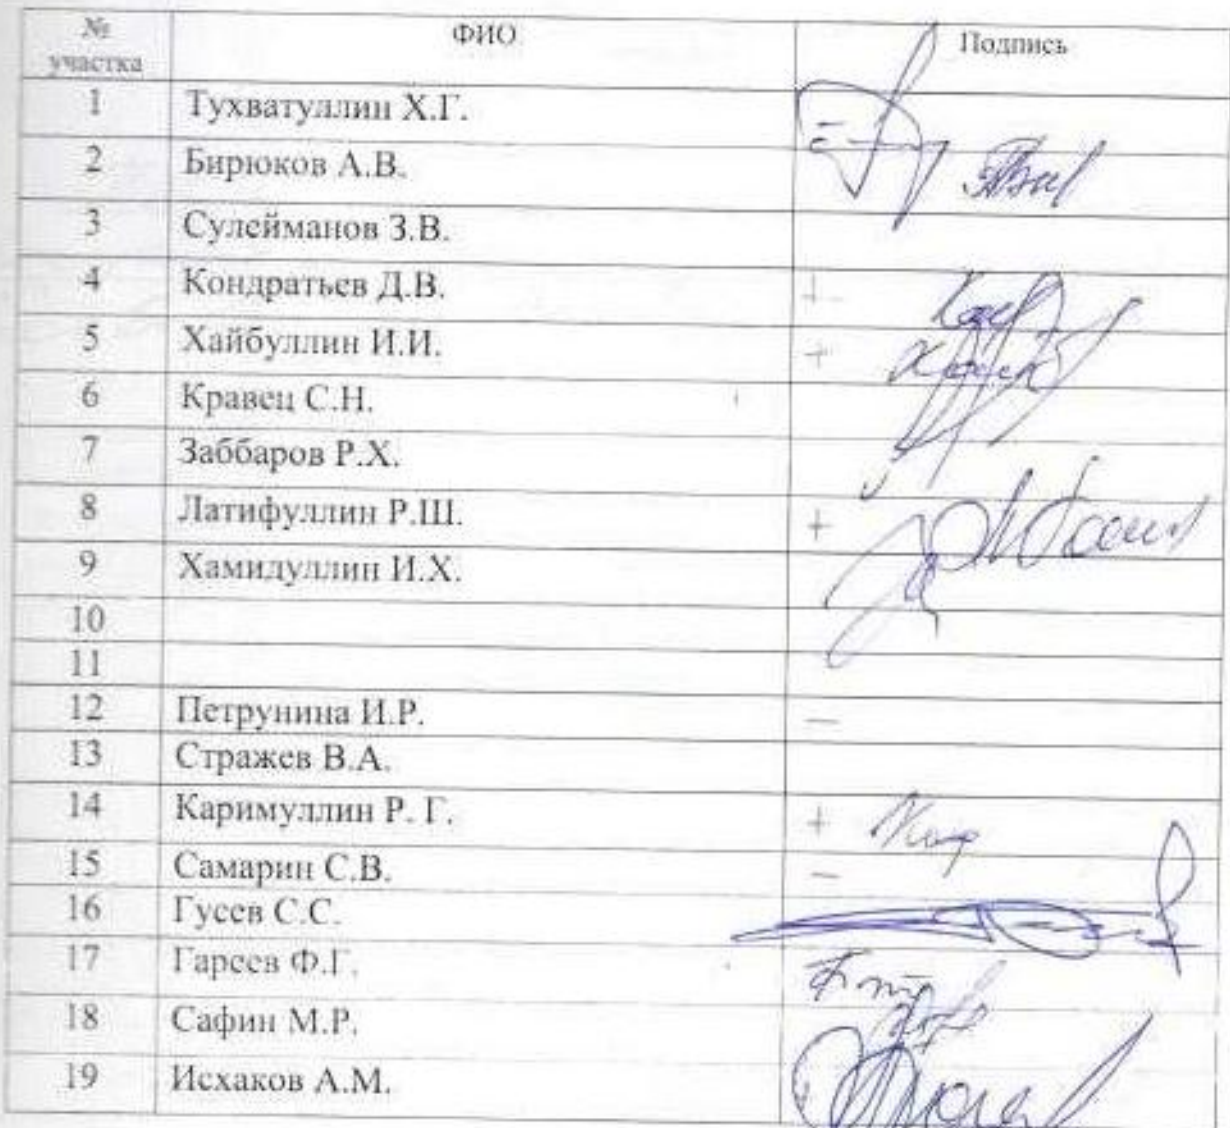 № участка ФИО Подпись
1 Тухватуллин Х.Г.
2 Бирюков А.В.
3 Сулейманов З.В.
4 Кондратьев Д.В. +
5 Хайбуллин И.И. +
6 Кравец С.Н.
7 Заббаров Р.Х.
8 Латифуллин Р.Ш. +
9 Хамидуллин И.Х.
10
11
12 Петрунина И.Р. –
13 Стражев В.А.
14 Каримуллин Р. Г. +
15 Самарин С.В. –
16 Гусев С.С.
17 Гареев Ф.Г.
18 Сафин М.Р.
19 Исхаков А.М.